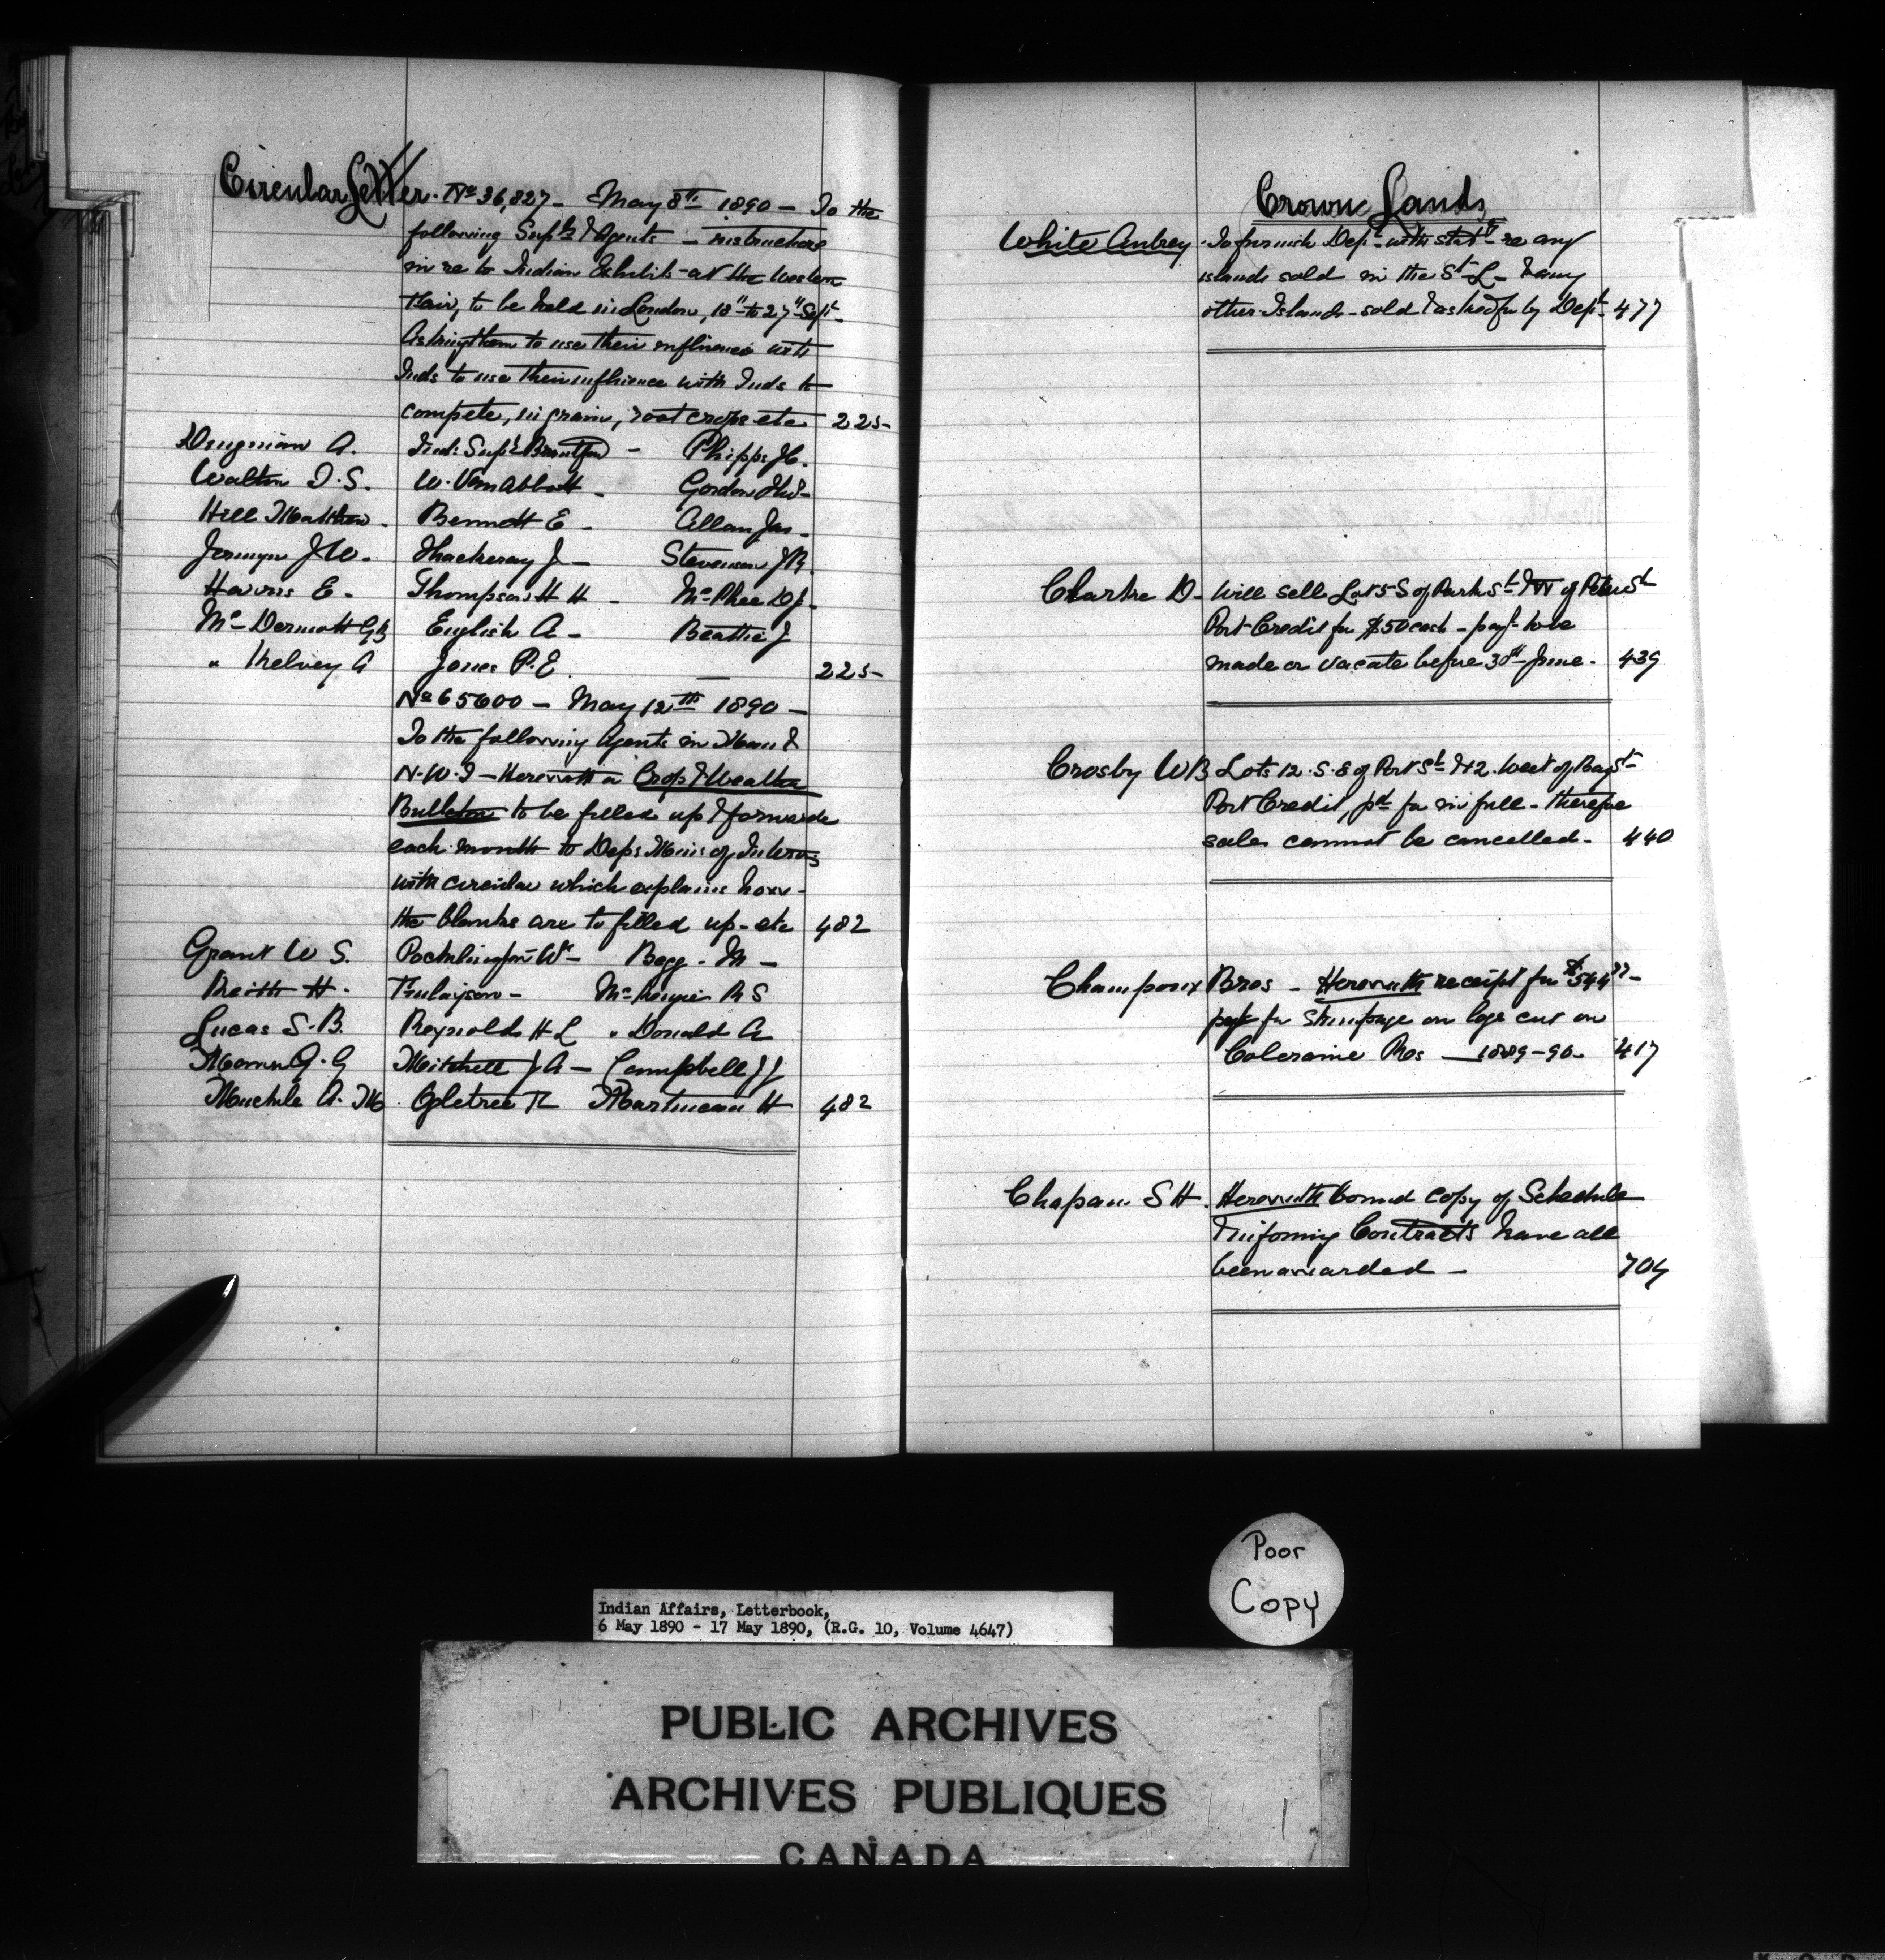 Circular Letter. No 36,827 - May 8th 1890 - To the
following Supts & Agents - instructions
in re to Indian Exhibit at the Western
Fair, to be held in London, 18" to 27" Sept.
Asking them to use their influence with
Inds to use their influence with Inds to
compete, in grain, root crops etc 225
A. Ind: Supt Brantford - Phipps J C.
Walton T. S. W. Van Abbott - Gordon
Hill Matthew - Bennett E - Allan Jas -
Jermyn J W - Thackeray J - Stevenson J R
Harris E - Thompson H H - McPhee D J -
Mc Dermott English A - Beattie J
" Kelvey A Jones P. E. 225
No 65600 - May 12th 1890 -
To the following Agents in Man &
N. W. T - Herewith a Crop & Weather
Bulletin to be filled up & forwarded
each month to Dept Minis of Interior
with circular which explains how
the blanks are to filled up - etc 482
Grant W S. Pocklington W - Begg - M -
Keith H. Finlayson - McKenzie R S
Lucas S. B. Reynolds H L " Donald A
Mann G. G Mitchell J A - Campbell J J
A. M Ogletree F Martineau H 482
Crown Lands
White Aubrey - To furnish Dept with statt re any
islands sold in the St L - & any
other Islands - sold & asked for by Dept - 477
Clarke D - Will sell Lot 5 S of Park St & W of Peter St
Port Credit for $50 cash - payt to be
made or vacate before 30th June - 439
Crosby W B Lots 12. S. 8 of Port St & 2. West of Bay St
Port Credit, pd for in full - therefore
sales cannot be cancelled - 440
Champoux Bros - Herewith receipt for $544
for Stumpage on logs cut on
Coleraine Res - 1889-90 - 417
S H. Herewith bound copy of Schedule
Contracts have all
been awarded - 704
Poor
Copy
Indian Affairs, Letterbook,
6 May 1890 - 17 May 1890, (R.G. 10, Volume 4647)
PUBLIC ARCHIVES
ARCHIVES PUBLIQUES
CANADA